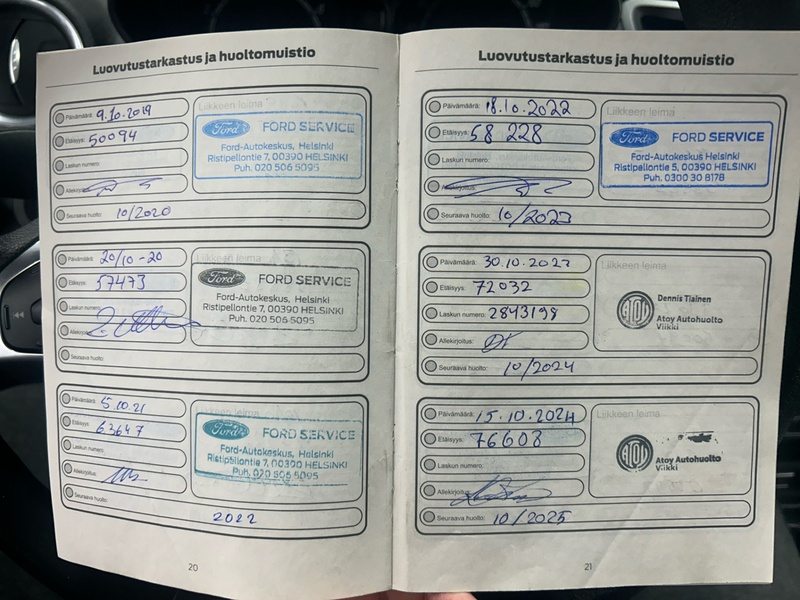 Luovutustarkastus ja huoltomuistio
Päivämäärä: 9.10.2019
Etäisyys: 50094
Laskun numero:
Allekirjoitus:
Seuraava huolto: 10/2020
Liikkeen leima
Ford FORD SERVICE
Ford-Autokeskus, Helsinki
Ristipellontie 7, 00390 HELSINKI
Puh. 020 506 5095
Päivämäärä: 20/10-20
Etäisyys: 57473
Laskun numero:
Allekirjoitus:
Seuraava huolto:
Liikkeen leima
Ford FORD SERVICE
Ford-Autokeskus, Helsinki
Ristipellontie 7, 00390 HELSINKI
Puh. 020 506 5095
Päivämäärä: 5.10.21
Etäisyys: 63647
Laskun numero:
Allekirjoitus:
Seuraava huolto: 2022
Liikkeen leima
Ford FORD SERVICE
Ford-Autokeskus, Helsinki
Ristipellontie 7, 00390 HELSINKI
Puh. 020 506 5095
20
Luovutustarkastus ja huoltomuistio
Päivämäärä: 18.10.2022
Etäisyys: 58 228
Laskun numero:
Allekirjoitus:
Seuraava huolto: 10/2023
Liikkeen leima
Ford FORD SERVICE
Ford-Autokeskus Helsinki
Ristipellontie 5, 00390 HELSINKI
Puh. 0300 30 8178
Päivämäärä: 30.10.2023
Etäisyys: 72032
Laskun numero: 2843198
Allekirjoitus:
Seuraava huolto: 10/2024
Liikkeen leima
ATOY
Dennis Tiainen
Atoy Autohuolto
Viikki
Päivämäärä: 15.10.2024
Etäisyys: 76608
Laskun numero:
Allekirjoitus:
Seuraava huolto: 10/2025
Liikkeen leima
ATOY
Atoy Autohuolto
Viikki
21